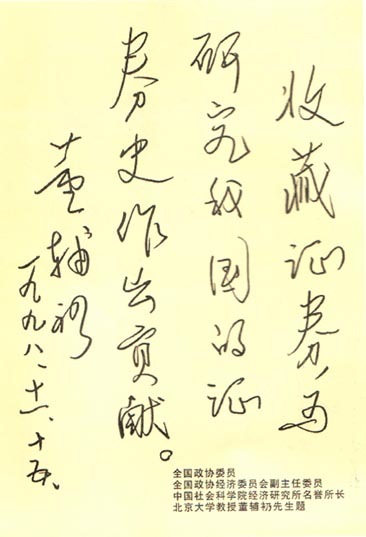 收藏证券,为
研究我国的证
券史作出贡献。
董辅礽
一九九八.十一.十五.
全国政协委员
全国政协经济委员会副主任委员
中国社会科学院经济研究所名誉所长
北京大学教授董辅礽先生题